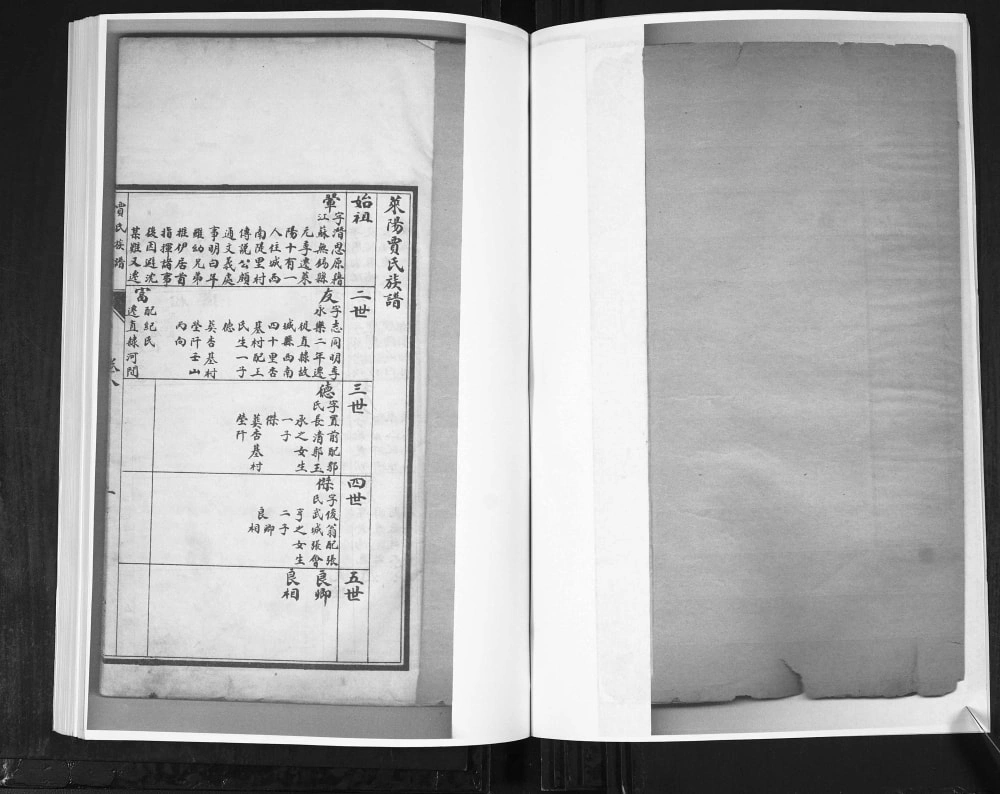 萊陽賈氏族譜
始祖
鞏
字潛思原籍
江蘇無錫縣
元季遷萊
陽十有一
人住城西
南陵里村
傳說公頗
通文義處
事明白年
雖幼兄弟
推伊居首
指揮諸事
後因避沈
某難又遷
二世
友
字志同明季
永樂二年遷
從直隸故
城縣西南
四十里杏
基村配王
氏生一子
德
葬杏基村
塋阡壬山
丙向
富
配紀氏
遷直隸河間
三世
德
字置前配郭
氏長清郭玉
永之女生
一子
傑
葬杏基村
塋阡
四世
傑
字俊翁配張
氏武城張會
亨之女生
二子
良卿
良相
五世
良卿
良相
賈氏族譜
一